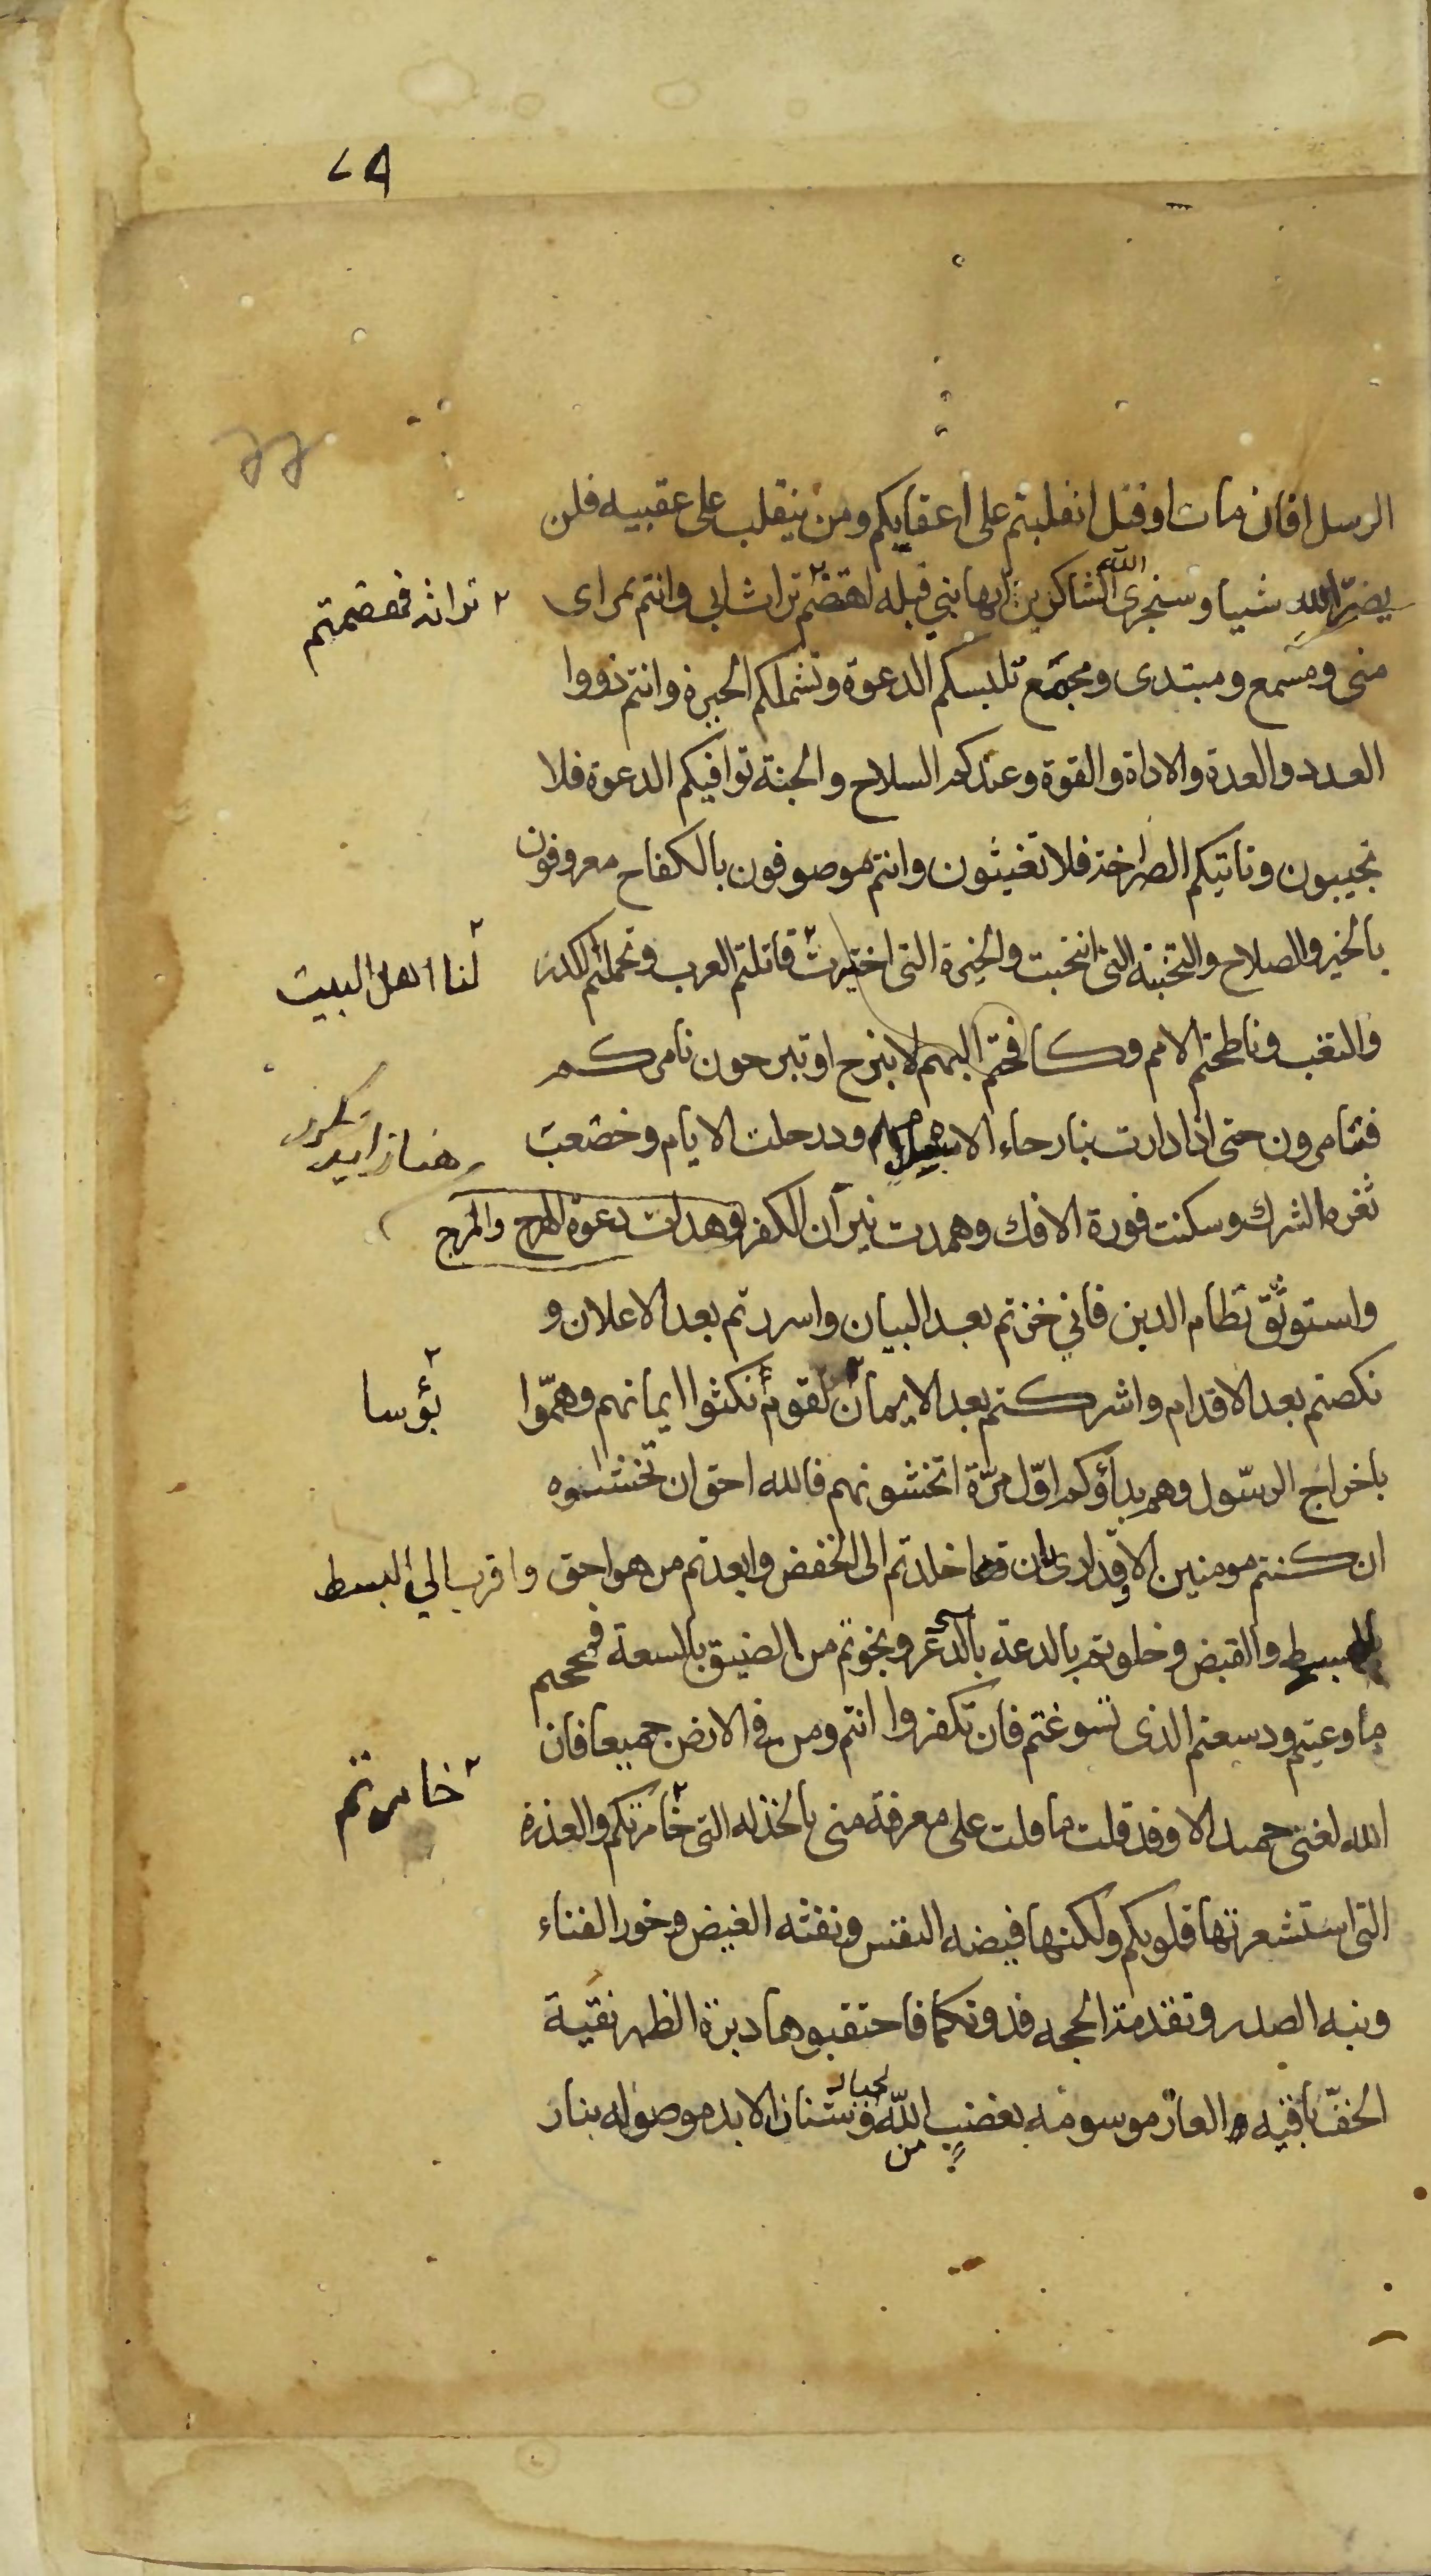 الرسل افان مات او قتل انقلبتم على اعقابكم ومن ينقلب على عقبيه فلن
يضر الله شيا وسنجزى الله الشاكرين ايها بني قيله اهتضم تراث ابى وانتم بمراى
تراثه
منى ومسمع ومبتدى ومجمع تلبسكم الدعوة وتشملكم الحيرة وانتم ذووا
العدد والعدة والاداة والقوة وعندكم السلاح والجنة توافيكم الدعوة فلا
تجيبون وتاتيكم الصراخة فلا تغيثون وانتم موصوفون بالكفاح معروفون
بالخير والصلاح والنخبة التى انتخبت والخيرة التى اختيرت قاتلتم العرب وتحملتم الكد
لنا اهل البيت
والتعب وناطحتم الامم وكافحتم البهم لا نبرح او تبرحون نامركم
فتامرون حتى اذا دارت بنا رحاء الاسلام ودر حلب الايام وخضعت
ثغره الشرك وسكنت فورة الافك وهمدت نيران الكفر وهدات دعوة الهرج والمرج
واستوثق نظام الدين فاني حزتم بعد البيان واسررتم بعد الاعلان و
نكصتم بعد الاقدام واشركتم بعد الايمان لقوم نكثوا ايمانهم وهمّوا
بؤسا
باخراج الرسّول وهم بداؤكم اوّل مرّة اتخشونهم فالله احق ان تخشوه
ان كنتم مومنين الا وقد ارى ان قد اخلدتم الى الخفض وابعدتم من هو احق واقرب الي البسط
بالبسط والقبض وخلوتم بالدعة ونجوتم من الضيق بالسعة فمججتم
ما وعيتم ودسعتم الذى تسوغتم فان تكفروا انتم ومن في الارض جميعا فان
الله لغنى حميد الا وقد قلت ما قلت على معرفة منى بالخذله التى خامرتكم والغدرة
خامرتم
التى استشعرتها قلوبكم ولكنها فيضه النفس ونفثه الغيض وخور القناء
وبثه الصدر وتقدمة الحجه فدونكما فاحتقبوها دبرة الظهر نقية
الخفّ باقيه العار موسومه بغضب من الله وشنار الابد موصوله بنار